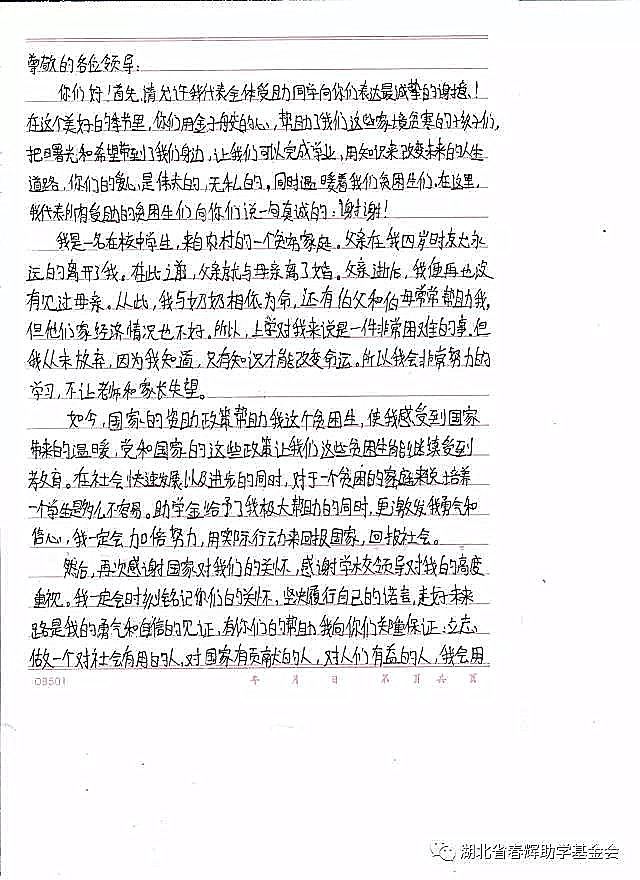 尊敬的各位领导：
你们好！首先，请允许我代表全体受助同学向你们表达最诚挚的谢意！
在这个美好的季节里，你们用金子般的心，帮助了我们这些家境贫寒的孩子们，
把曙光和希望带到了我们身边，让我们可以完成学业，用知识来改变未来的人生
道路，你们的爱心是伟大的，无私的，同时温暖着我们贫困生们。在这里，
我代表所有受助的贫困生们向你们说一句真诚的：谢谢！
我是一名在校中学生，来自农村的一个贫穷家庭。父亲在我四岁时永
远的离开了我。在此之前，父亲就与母亲离了婚。父亲逝后，我便再也没
有见过母亲。从此，我与奶奶相依为命，还有伯父和伯母常常帮助我，
但他们家经济情况也不好。所以，上学对我来说是一件非常困难的事。但
我从未放弃，因为我知道，只有知识才能改变命运。所以我会非常努力的
学习，不让老师和家长失望。
如今，国家的资助政策帮助我这个贫困生，使我感受到国家
带来的温暖，党和国家的这些政策让我们这些贫困生能继续受到
教育。在社会快速发展以及进步的同时，对于一个贫困的家庭来说培养
一个学生是多么不容易。助学金给予了我极大帮助的同时，更激发我勇气和
信心，我一定会加倍努力，用实际行动来回报国家，回报社会。
然后，再次感谢国家对我们的关怀，感谢学校领导对我的高度
重视。我一定会时刻铭记你们的关怀，坚决履行自己的诺言，走好未来
路是我的勇气和自信的见证，有你们的帮助我向你们郑重保证：立志
做一个对社会有用的人，对国家有贡献的人，对人们有益的人，我会用
08501 年 月 日 第 页 共 页
湖北省春辉助学基金会